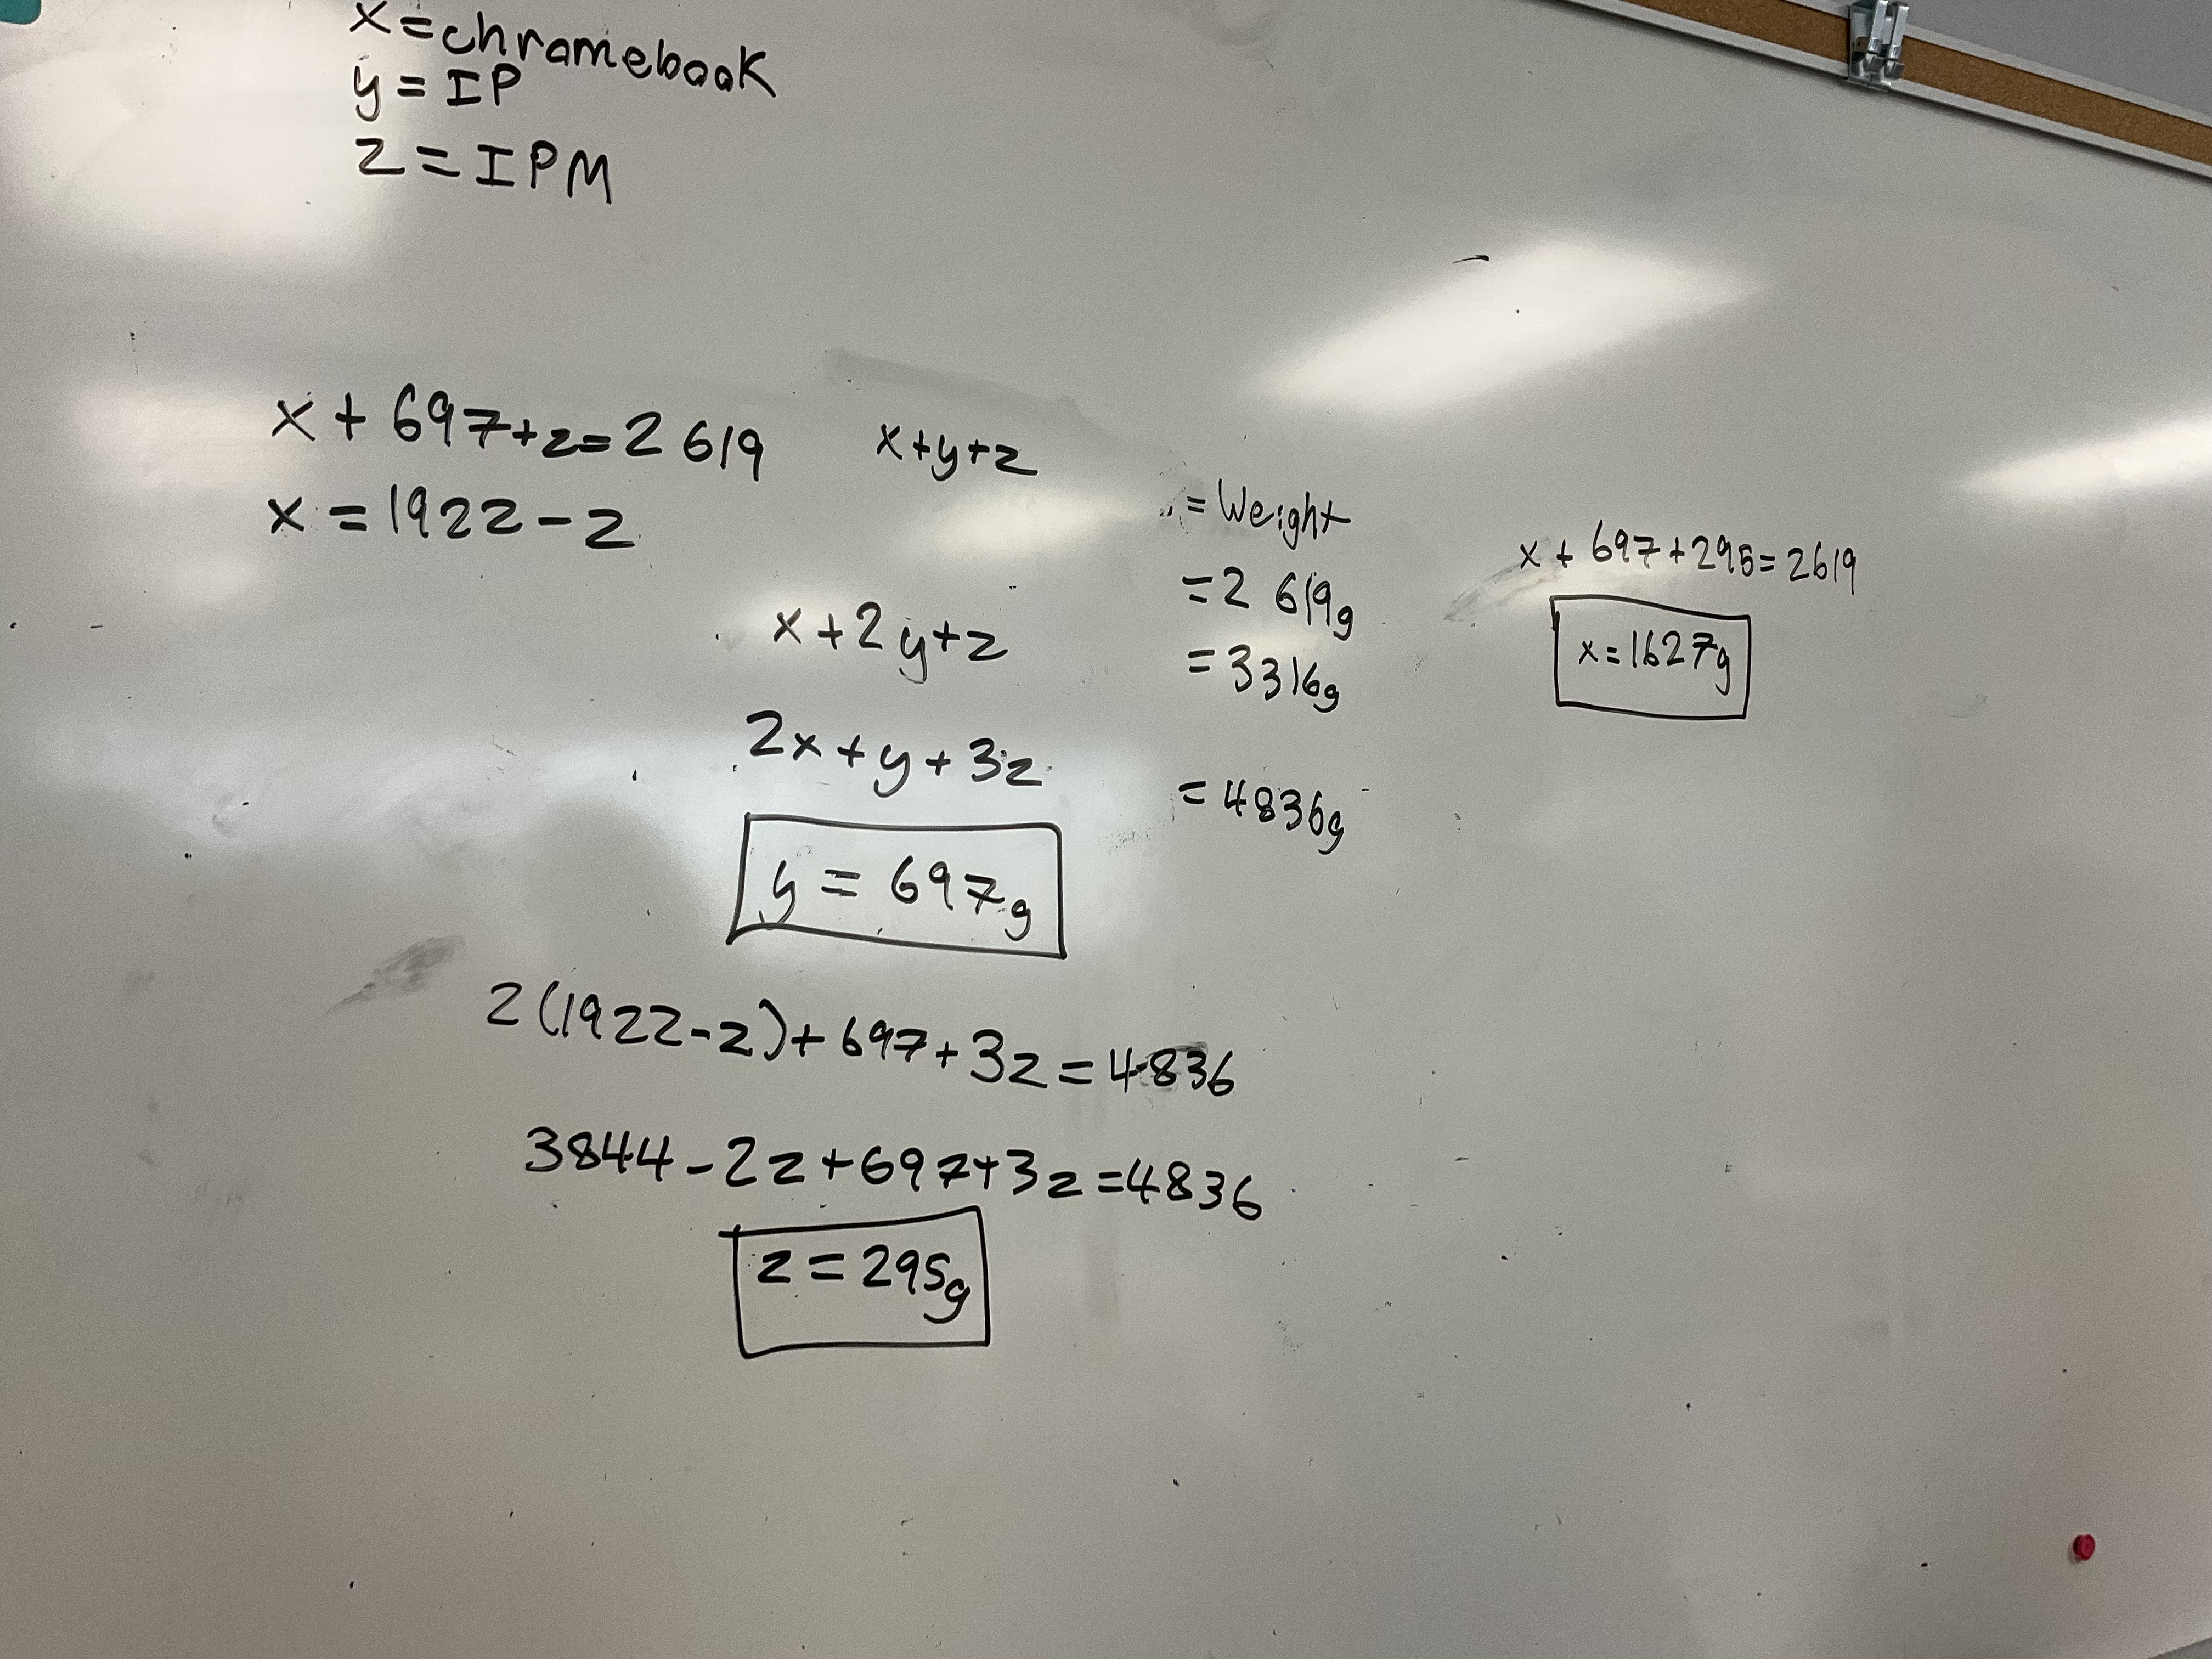 x=chromebook
y = IP
z = IPM
x + 697+z=2 619
x = 1922 - z
x+y+z
= Weight
= 2 619g
x+2y+z
= 3316g
2x + y + 3z
= 4836g
y = 697g
2(1922-z)+ 697 + 3z = 4836
3844 - 2z + 697 + 3z = 4836
z = 295g
x + 697 + 295 = 2619
x = 1627g